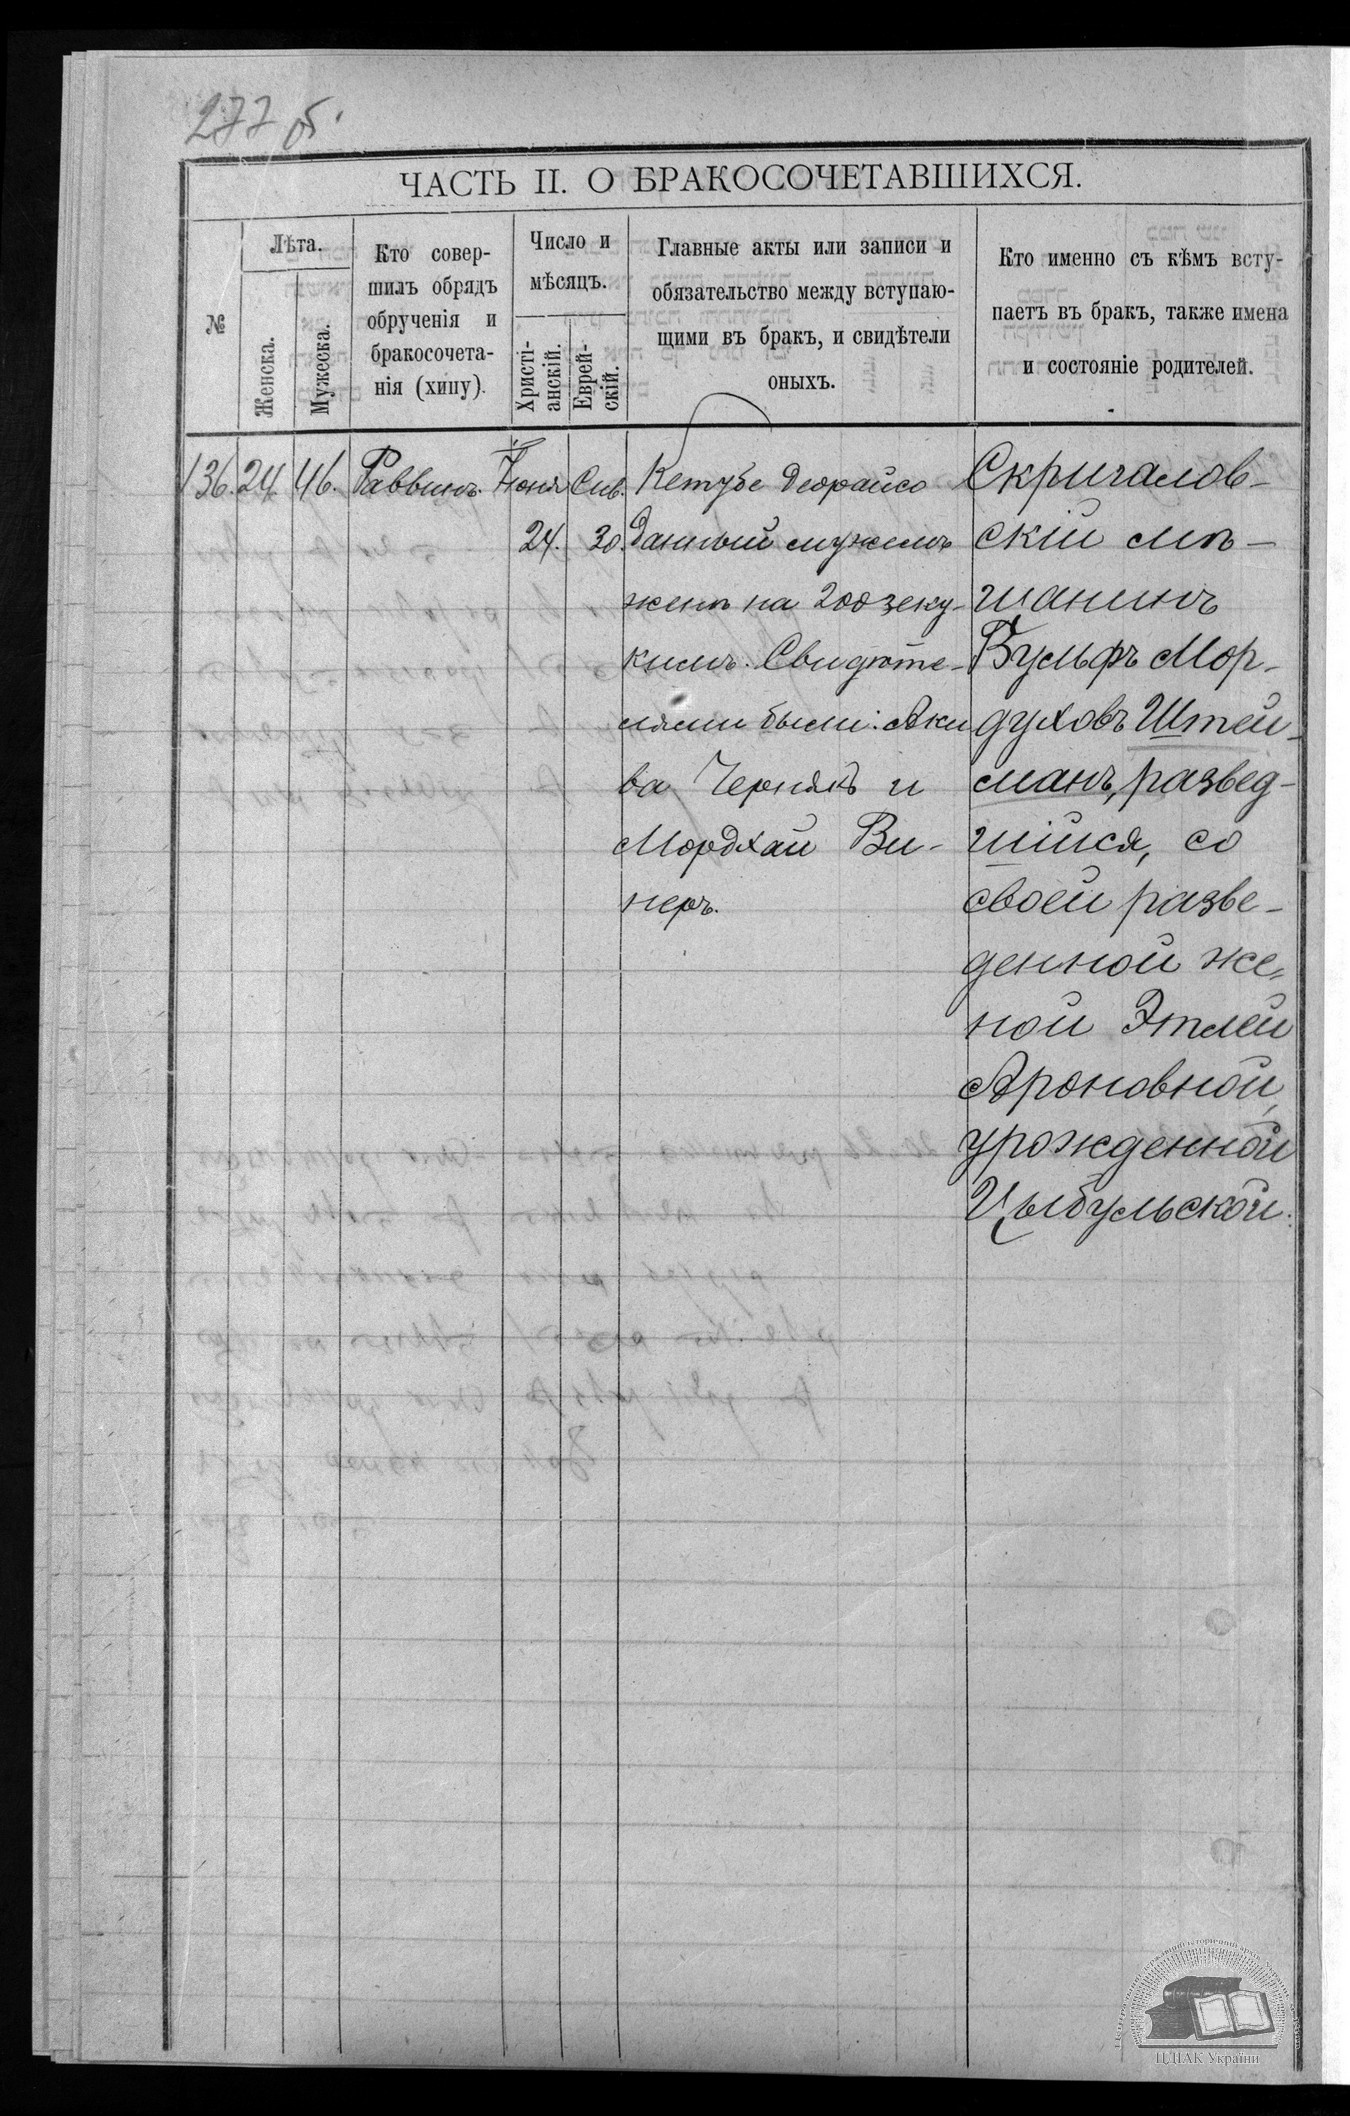 277 об.
ЧАСТЬ II. О БРАКОСОЧЕТАВШИХСЯ.
№
Лѣта.
Женска.
Мужеска.
Кто совер-
шилъ обрядъ
обрученія и
бракосочета-
нія (хипу).
Число и
мѣсяцъ.
Христі-
анскій.
Еврей-
скій.
Главные акты или записи и
обязательство между вступаю-
щими въ бракъ, и свидѣтели
оныхъ.
Кто именно съ кѣмъ всту-
паетъ въ бракъ, также имена
и состояніе родителей.
136.
24
46.
Раввинъ.
Іюня
24.
Сив.
30.
Кетубе деорайсо
данный мужемъ
женѣ на 200 зеку-
кимъ. Свидѣте-
лями были: Аки
ва Чернякъ и
Мордхай Ви-
неръ.
Скригалов-
скій мѣ-
щанинъ
Вульфъ Мор-
духовъ Штей-
манъ, развед-
шійся, со
своей разве-
денной же-
ной Этлей
Ароновной,
урожденной
Цыбульской.
ЦДІАК України